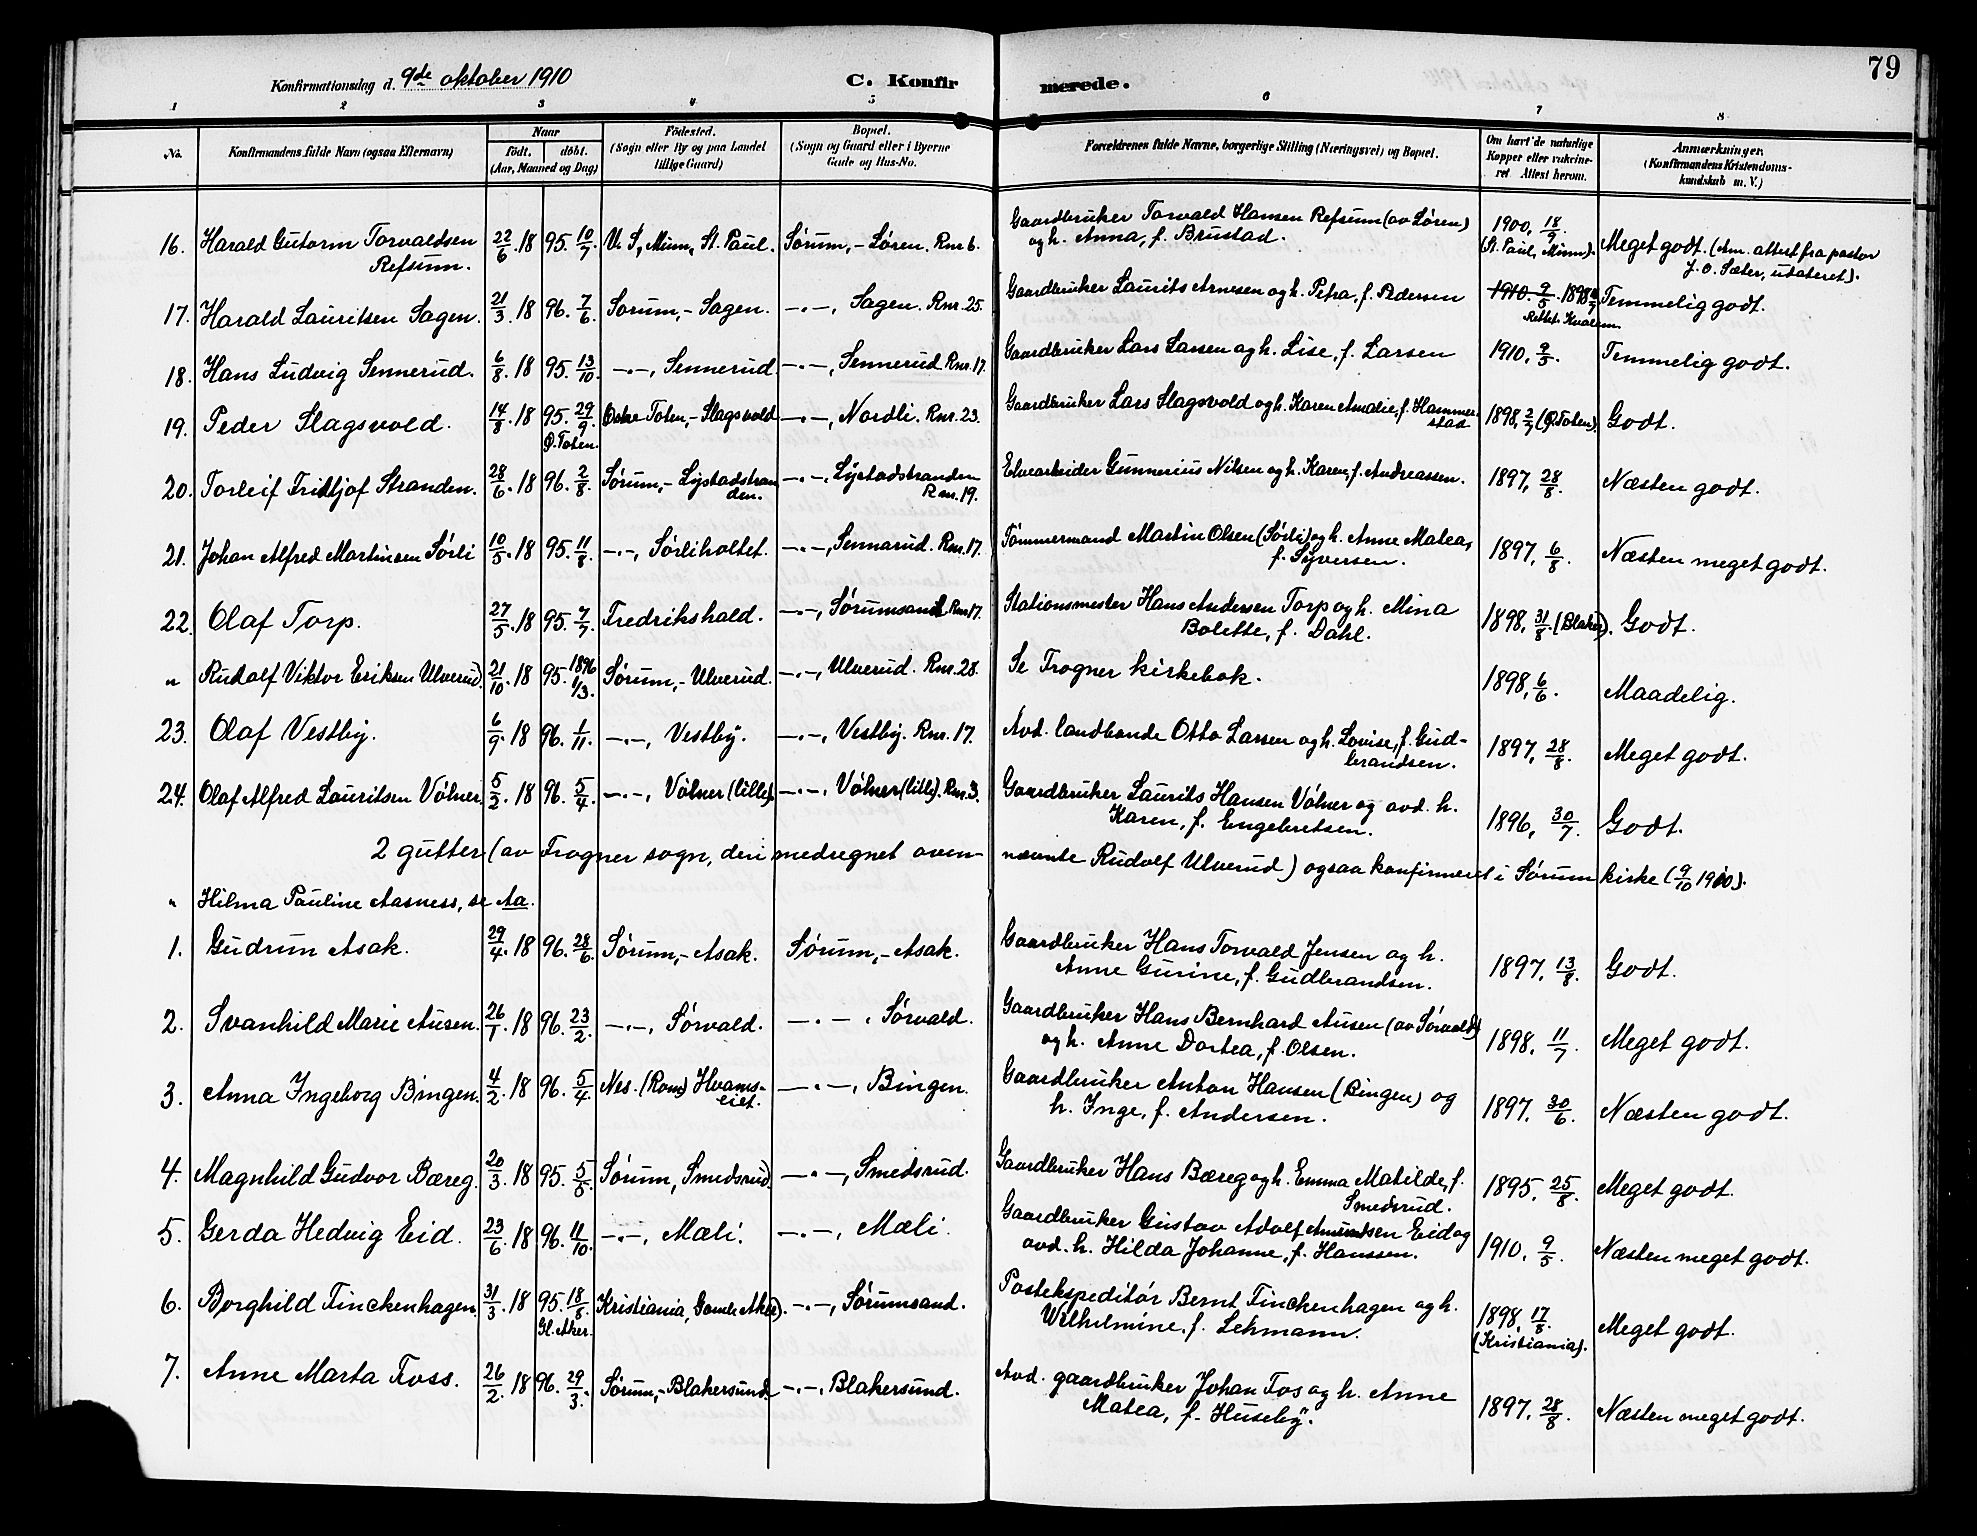 79
Konfirmationsdag d. 9de oktober 1910 C. Konfirmerede.
1 2 3 4 5 6 7 8
No. Konfirmandens fulde Navn (ogsaa Efternavn) Naar født, døbt. (Aar, Maaned og Dag) Fødested. (Sogn eller By og paa Landet tillige Gaard) Bopæl. (Sogn og Gaard eller i Byerne Gade og Hus-No. Forældrenes fulde Navne, borgerlige Stilling (Næringsvei) og Bopæl. Om havt de naturlige Kopper eller vakcineret Attest herom. Anmærkninger. (Konfirmandens Kristendomskundskab m. V.)
16. Harald Gutorm Torvaldsen Refsum. 22/6 18 95. 10/7 U. S., Minn., St. Paul. Sørum, - Søren. Rnr. 6. Gaardbruker Torvald Hansen Refsum (av Søren) og h. Anna, f. Brustad. 1900, 18/9 (St. Paul, Minn). Meget godt. (Am. attest fra pastor J. O. Sæter, utateret).
17. Harald Lauritsen Sagen. 21/3 18 96. 7/6 Sørum, - Sagen. -"-, Sagen. Rnr. 25. Gaardbruker Laurits Arnesen og h. Petra, f. Pedersen 1910. 9/5. 1898 Rettet. Kvalem. Temmelig godt.
18. Hans Ludvig Sennerud. 6/8 18 95. 13/10 -"-, Sennerud -"-, Sennerud Rnr. 17. Gaardbruker Lars Larsen og h. Lise, f. Larsen 1910, 9/5. Temmelig godt.
19. Peder Slagsvold. 14/8 18 95. 29/9 Ø. Toten. Østre Toten, - Slagsvold -"-, Nordli. Rnr. 23. Gaardbruker Lars Slagsvold og h. Karen Amalie, f. Hammerstad 1898, 2/7 (Ø. Toten). Godt.
20. Torleif Fritjof Stranden. 28/6 18 96. 2/8. Sørum, - Lystadstranden. -"-, Lystadstranden Rnr. 19. Elvearbeider Gunnerius Nilsen og h. Karen, f. Andreassen. 1897, 28/8. Næsten godt.
21. Johan Alfred Martinsen Sørli 10/5. 18 95. 11/8 -"-, Sørliholtet. -"-, Sennarud. Rnr. 17. Tømmermand Martin Olsen (Sørli) og h. Anne Matea, f. Syversen. 1897, 6/8. Næsten meget godt.
22. Olaf Torp. 27/5. 18 95. 7/7. Fredrikshald. -"-, Sørumsand. Rnr. 17. Stationsmester Hans Andersen Torp og h. Mina Bolette, f. Dahl. 1898, 31/8. (Blaker). Godt.
" Rudolf Viktor Eriksen Ulverud. 21/10. 18 95. 1896 1/3. Sørum, - Ulverud. -"-, Ulverud. Rnr. 28. Se Frogner kirkebok. 1898, 6/6. Maadelig.
23. Olaf Vestby. 6/9. 18 96. 1/11. -"-, Vestby. -"-, Vestby. Rnr. 17. Avd. landhande Otto Larsen og h. Lovise, f. Gudbrandsen. 1897, 28/8. Meget godt.
24. Olaf Alfred Lauritsen Vølner. 5/2. 18 96. 5/4. -"-, Vølner (lille). -"-, Vølner (lille). Rnr. 3. Gaardbruker Laurits Hansen Vølner og avd. h. Karen, f. Engebretsen. 1896, 30/7. Godt.
2 gutter (av Frogner sogn, deri medregnet ovennævnte Rudolf Ulverud) ogsaa konfirmeret i Sørum kirke (9/10 1910).
" Hilma Pauline Aasness, se Aa.
1. Gudrun Asak. 29/4. 18 96. 28/6. Sørum, - Asak. Sørum, - Asak. Gaardbruker Hans Torvald Jensen og h. Anne Gurine, f. Gudbrandsen. 1897, 13/8. Godt.
2. Svanhild Marie Ausen. 26/1 18 96. 23/2. -"-, Sørvald. -"-, Sørvald. Gaardbruker Hans Bernhard Ausen (av Sørvald) og h. Anne Dortea, f. Olsen. 1898, 11/7. Meget godt.
3. Anna Ingeborg Bingen. 4/2. 18 96. 5/4. Nes. (Rom.) Hvamseiet. -"-, Bingen. Gaardbruker Anton Hansen (Bingen) og h. Inge, f. Andersen. 1897, 30/6. Næsten godt.
4. Magnhild Gudvor Bæreg. 20/3. 18 95. 5/5. Sørum, Smedsrud. -"-, Smedsrud. Gaardbruker Hans Bæreg og h. Emma Matilde, f. Smedsrud. 1895, 25/8. Meget godt.
5. Gerda Hedvig Eid. 23/6. 18 96. 11/10. -"-, Mæli. -"-, Mæli. Gaardbruker Gustav Adolf Amundsen Eid og avd. h. Hilda Johanne, f. Hanssen. 1910, 9/5. Næsten meget godt.
6. Borghild Finckenhagen. 31/3. 18 95. 18/8. Gl. Aker. Kristiania, Gamle Aker). -"-, Sørumsand. Postekspeditør Bernt Finckenhagen og h. Wilhelmine, f. Lehmann. 1898, 17/8. (Kristiania). Meget godt.
7. Anne Marta Foss. 26/2. 18 96. 29/3. Sørum, - Blakersund -"-, Blakersund. Avd. gaardbruker Johan Fos og h. Anne Matea, f. Huseby. 1897, 28/8. Næsten meget godt.